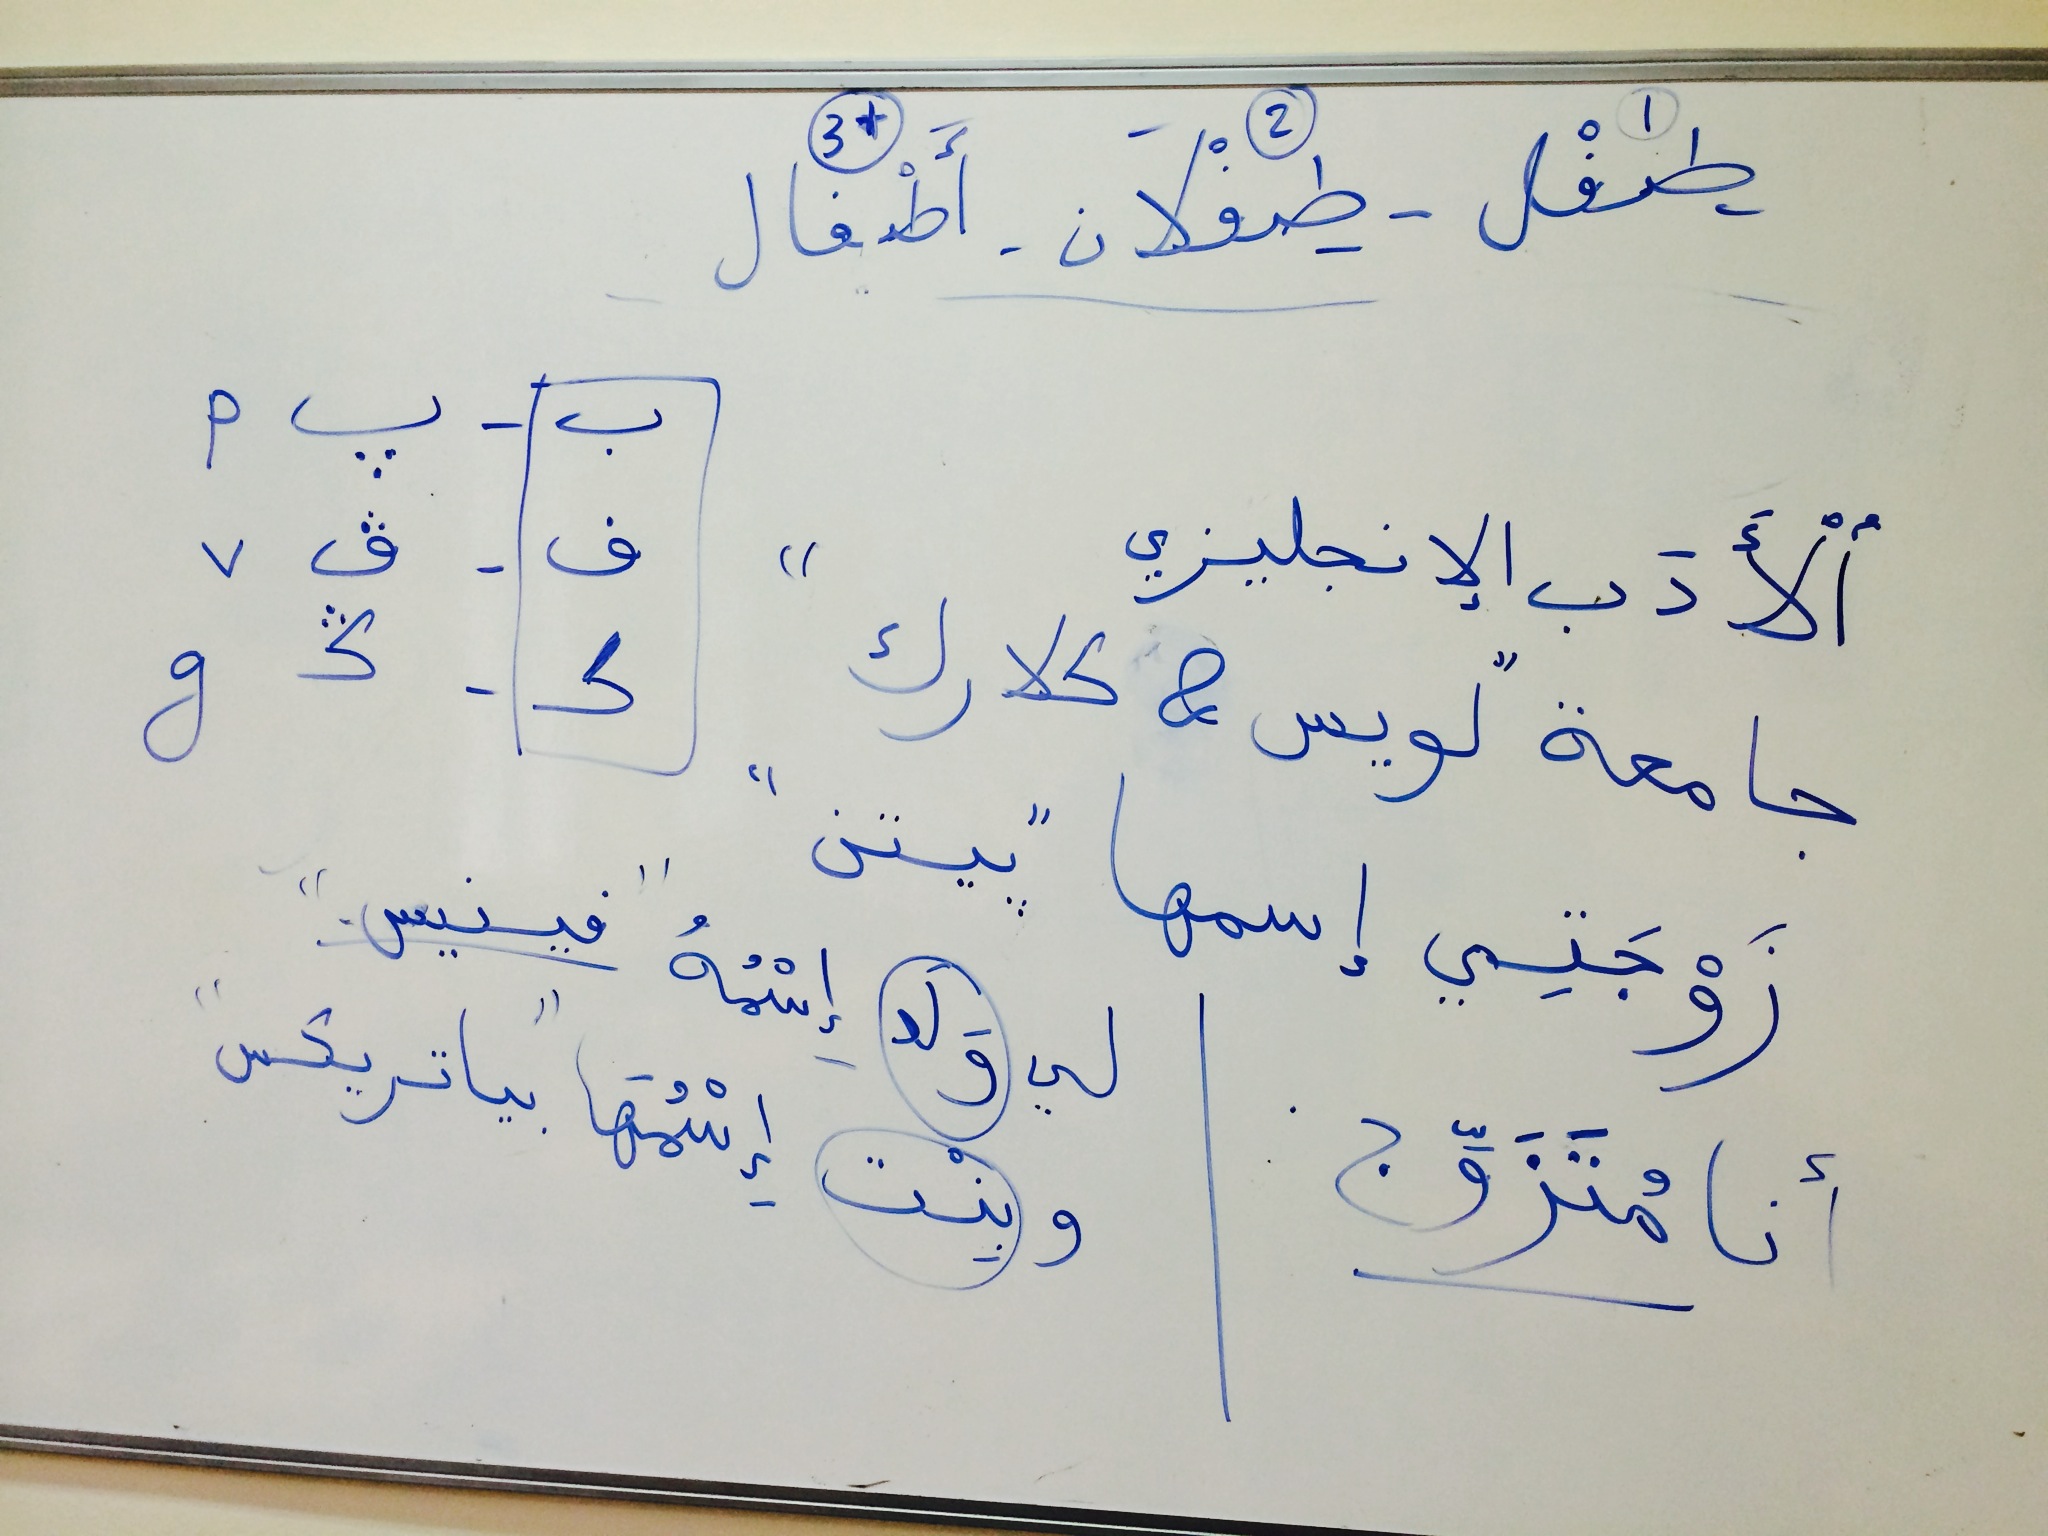 1 2 3+
طِفْل - طِفْلَان - أَطْفال
ب - پ p
ف - ڤ v
ك - ڭ g
ألْأَدَب الإنجليزي
جامعة "لويس & كلارك"
زَوْجَتِي إسمها "پيتن"
لي وَلَد إِسْمُهُ "فينيس"
و بِنْت إِسْمُهَا "بياتريكس"
أنا مُتَزَوِّج